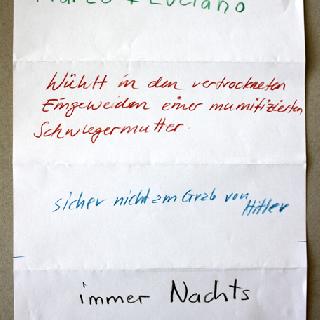 Marco & Luciano
Wühlt in den vertrockneten
Eingeweiden einer mumifizierten
Schwiegermutter.
sicher nicht am Grab von
Hitler
immer Nachts